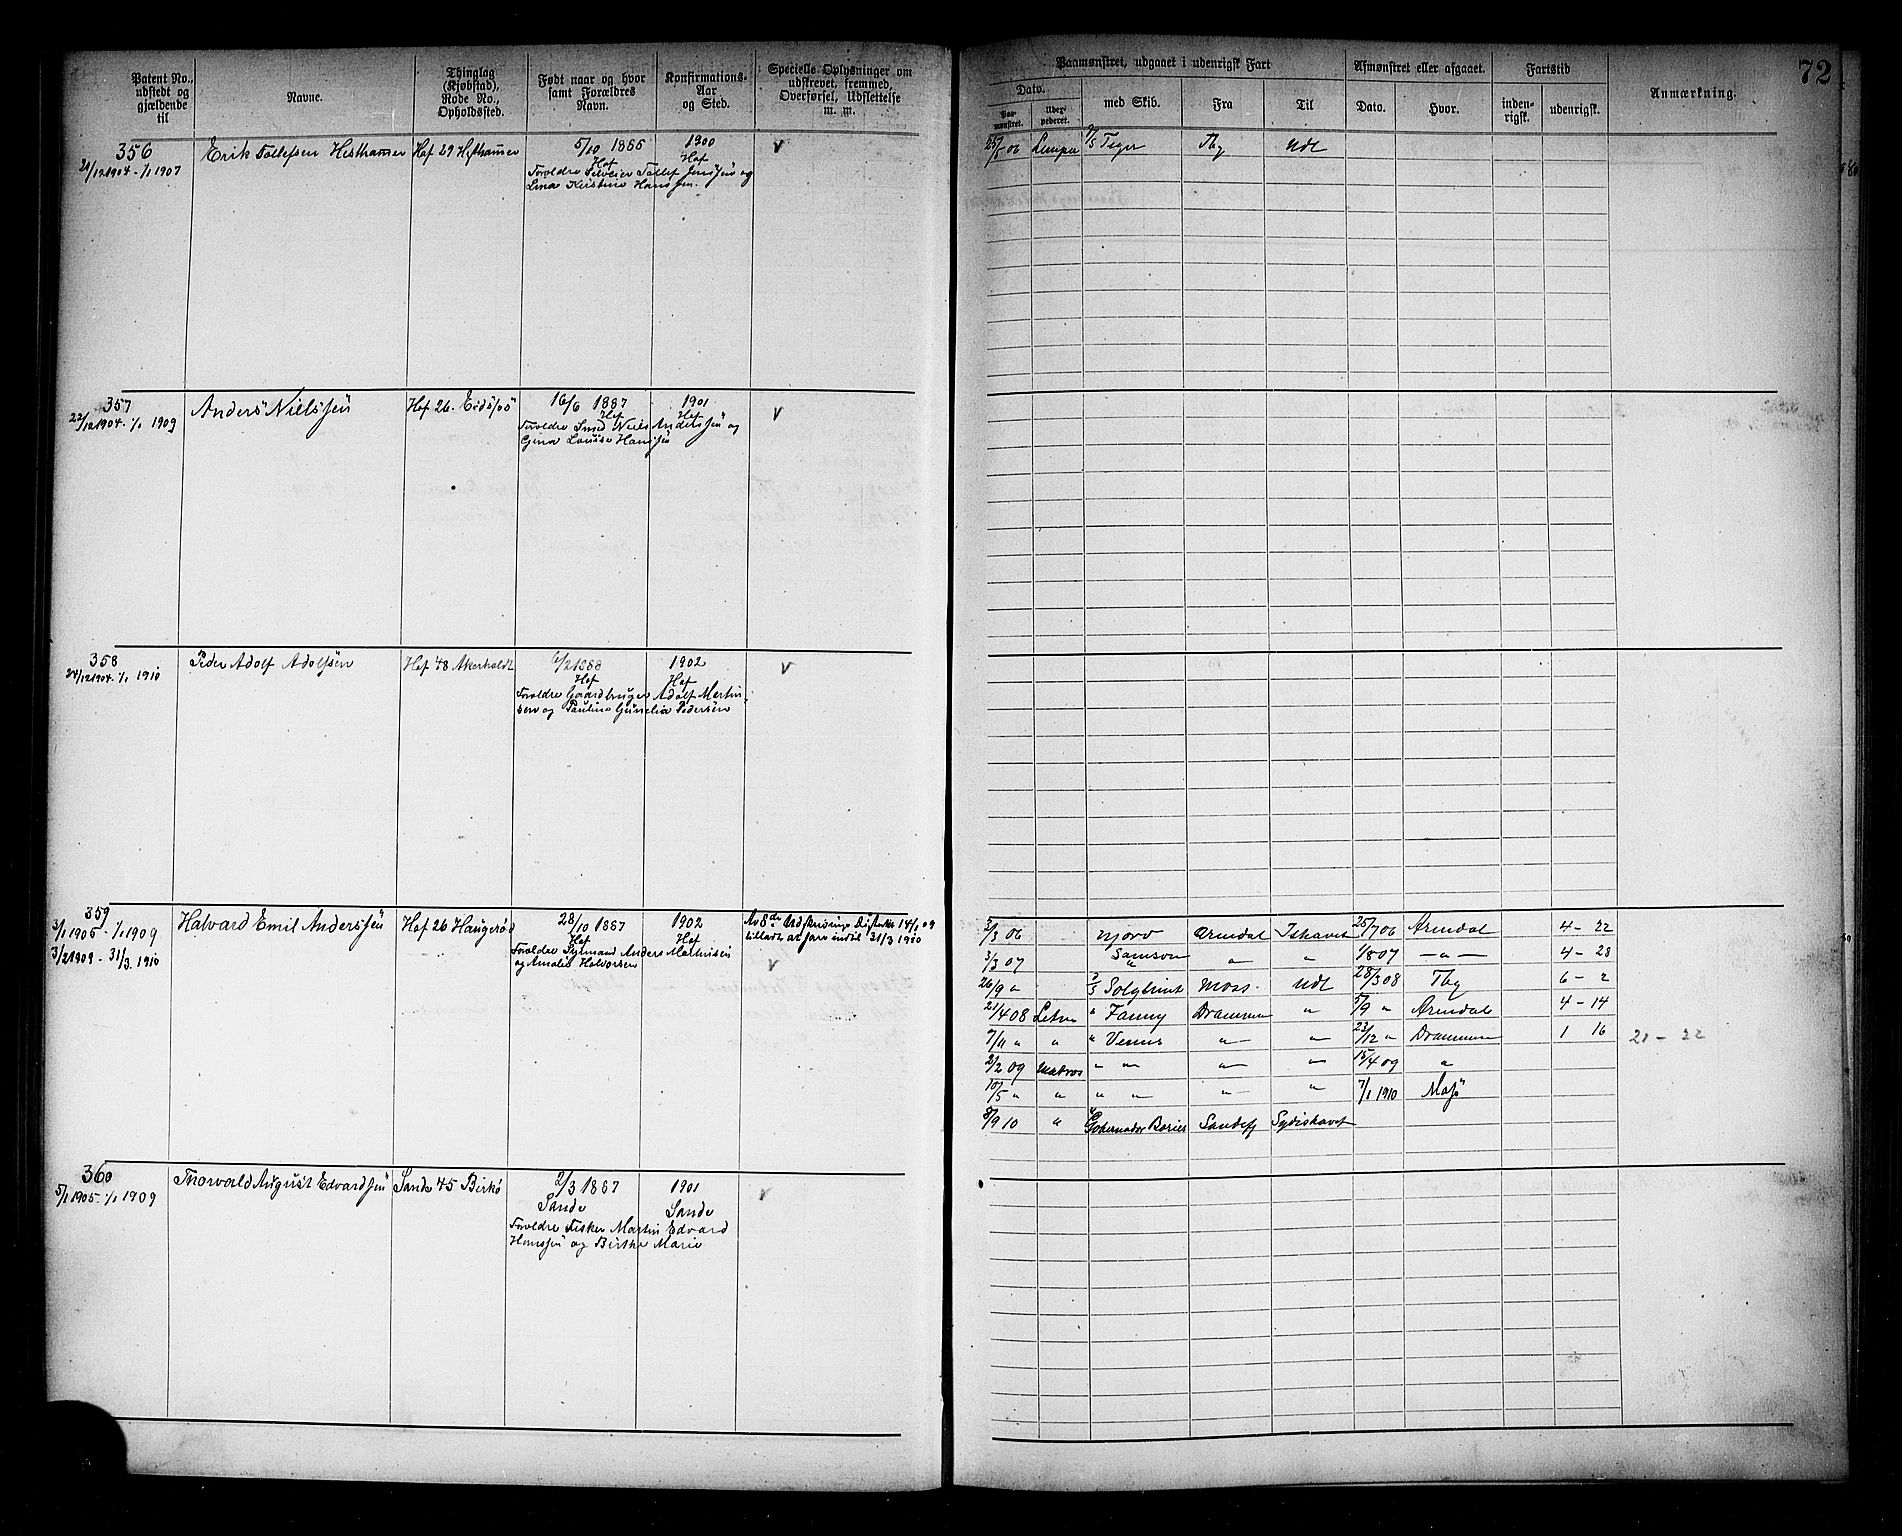 Patent No., udstedt og gjældende til
Navne.
Thinglag (Kjøbstad), Rode No., Opholdssted.
Født naar og hvor samt Forældres Navn.
Konfirmations-Aar og Sted.
Specielle Oplysninger om udskrevet, fremmed, Overførsel, Udslettelse m. m.
Paamønstret, udgaaet i udenrigsk Fart
Dato.
Paa-mønstret.
med Skib.
Fra
Til
Afmønstret eller afgaaet.
Dato.
Hvor.
Fartstid
inden-rigsk.
udenrigsk.
Anmærkning.
72
356
21/12 1904 - 1/1 1907
Erik Tollefsen Hesthammer
Hof 29 Hesthammer
5/10 1885
Hof
1900
Hof
Forældre Selveier Tollef Jenssen og
Lina Kristine Hanssen.
V
25/5 06
Tiger
Tbg
Udl
357
22/12 1904 - 1/1 1909
Anders Nielssen
Hof 26. Eidsfos
16/6 1887
Hof
1901
Hof
Forældre Smed Niels Anderssen og
Gina Louise Hanssen
V
358
24/12 1904. 1/1 1910
Peder Adolf Adolfsen
Hof 48 Akerholdt
6/2 1888
Hof
1902
Hof
Forældre Gaardbruger Adolf Martin-
sen og Pauline Gunelia Pedersen
V
359
3/1 1905 - 1/1 1909
3/2 1909 - 31/3. 1910
Halvard Emil Anderssen
Hof 26 Haugerød
28/10 1887
Hof
1902
Hof
Forældre Sømand Anders Mathisen
og Amalie Halvorsen
Av 8de Udskrivnings Distrikt 14/1 09
tilladt at fare indtil 31/3 1910
V
2/3 06 Njord Arendal Ishavet 25/7 06 Arendal 4 - 22
3/3 07 Samson " " 1/8 07 - " - 4 - 28
26/9 " Solglimt Moss. Udl 28/3 08 Tbg 6 - 2
21/4 08 Letm " Fanny Drammen " 5/9 " Arendal 4 - 14
7/11 " " " Venus " " 23/12 " Drammen 1 16 21 - 22
2/2 09 Matros " " " " 15/4 09 "
10/5 " " " " " " 7/1 1910
8/9 10 " Gobernador Bories Sandefj Sydishavet
360
5/1 1905 - 1/1 1909
Thorvald August Edvardsen
Sande 45 Birkø
2/3 1887
Sande
1901
Sande
Forældre Fisker Martin Edvard
Hanssen og Birthe Marie
V